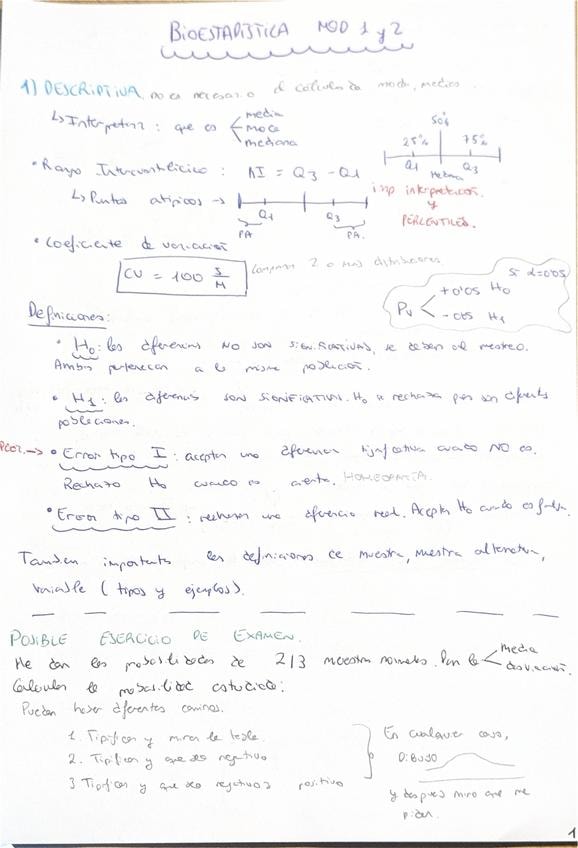 BIOESTADÍSTICA MOD 1 y 2
1) DESCRIPTIVA no es necesario el cálculo de moda, media
↳ Interpretar: que es media
moda
mediana
50%
25% 75%
Q1 Mediana Q3
• Rango Intercuartílico: RI = Q3 - Q1
imp interpretación
y
PERCENTILES.
↳ Puntos atípicos →
Q1 Q3
PA PA.
• Coeficiente de variación
CV = 100 S/M
Comparar 2 o más distribuciones
Si α=0'05
Pv +0'05 H0
-0'05 H1
Definiciones:
• H0: las diferencias NO son SIGNIFICATIVAS, se deben al muestreo.
Ambas pertenecen a la misma población.
• H1: las diferencias SON SIGNIFICATIVA. H0 se rechaza pues son diferentes
poblaciones.
PEOR → • Error tipo I: aceptar una diferencia significativa cuando NO es.
Rechazo H0 cuando es cierta. HOMEOPATÍA.
• Error tipo II: rechazar una diferencia real. Acepta H0 cuando es falsa.
Tambien importante las definiciones de muestra, muestra alternativa,
variable (tipos y ejemplos).
POSIBLE EJERCICIO DE EXAMEN.
Me dan las probabilidades de 2/3 muestras normales. Dan la media
desviación.
Calcular la probabilidad estudiada:
Pueden haber diferentes caminos.
1. Tipificar y mirar la tabla.
2. Tipificar y que sea negativo
3. Tipificar y que sea negativo a positivo
En cualquier caso,
DIBUJO
y después miro que me
piden.
1